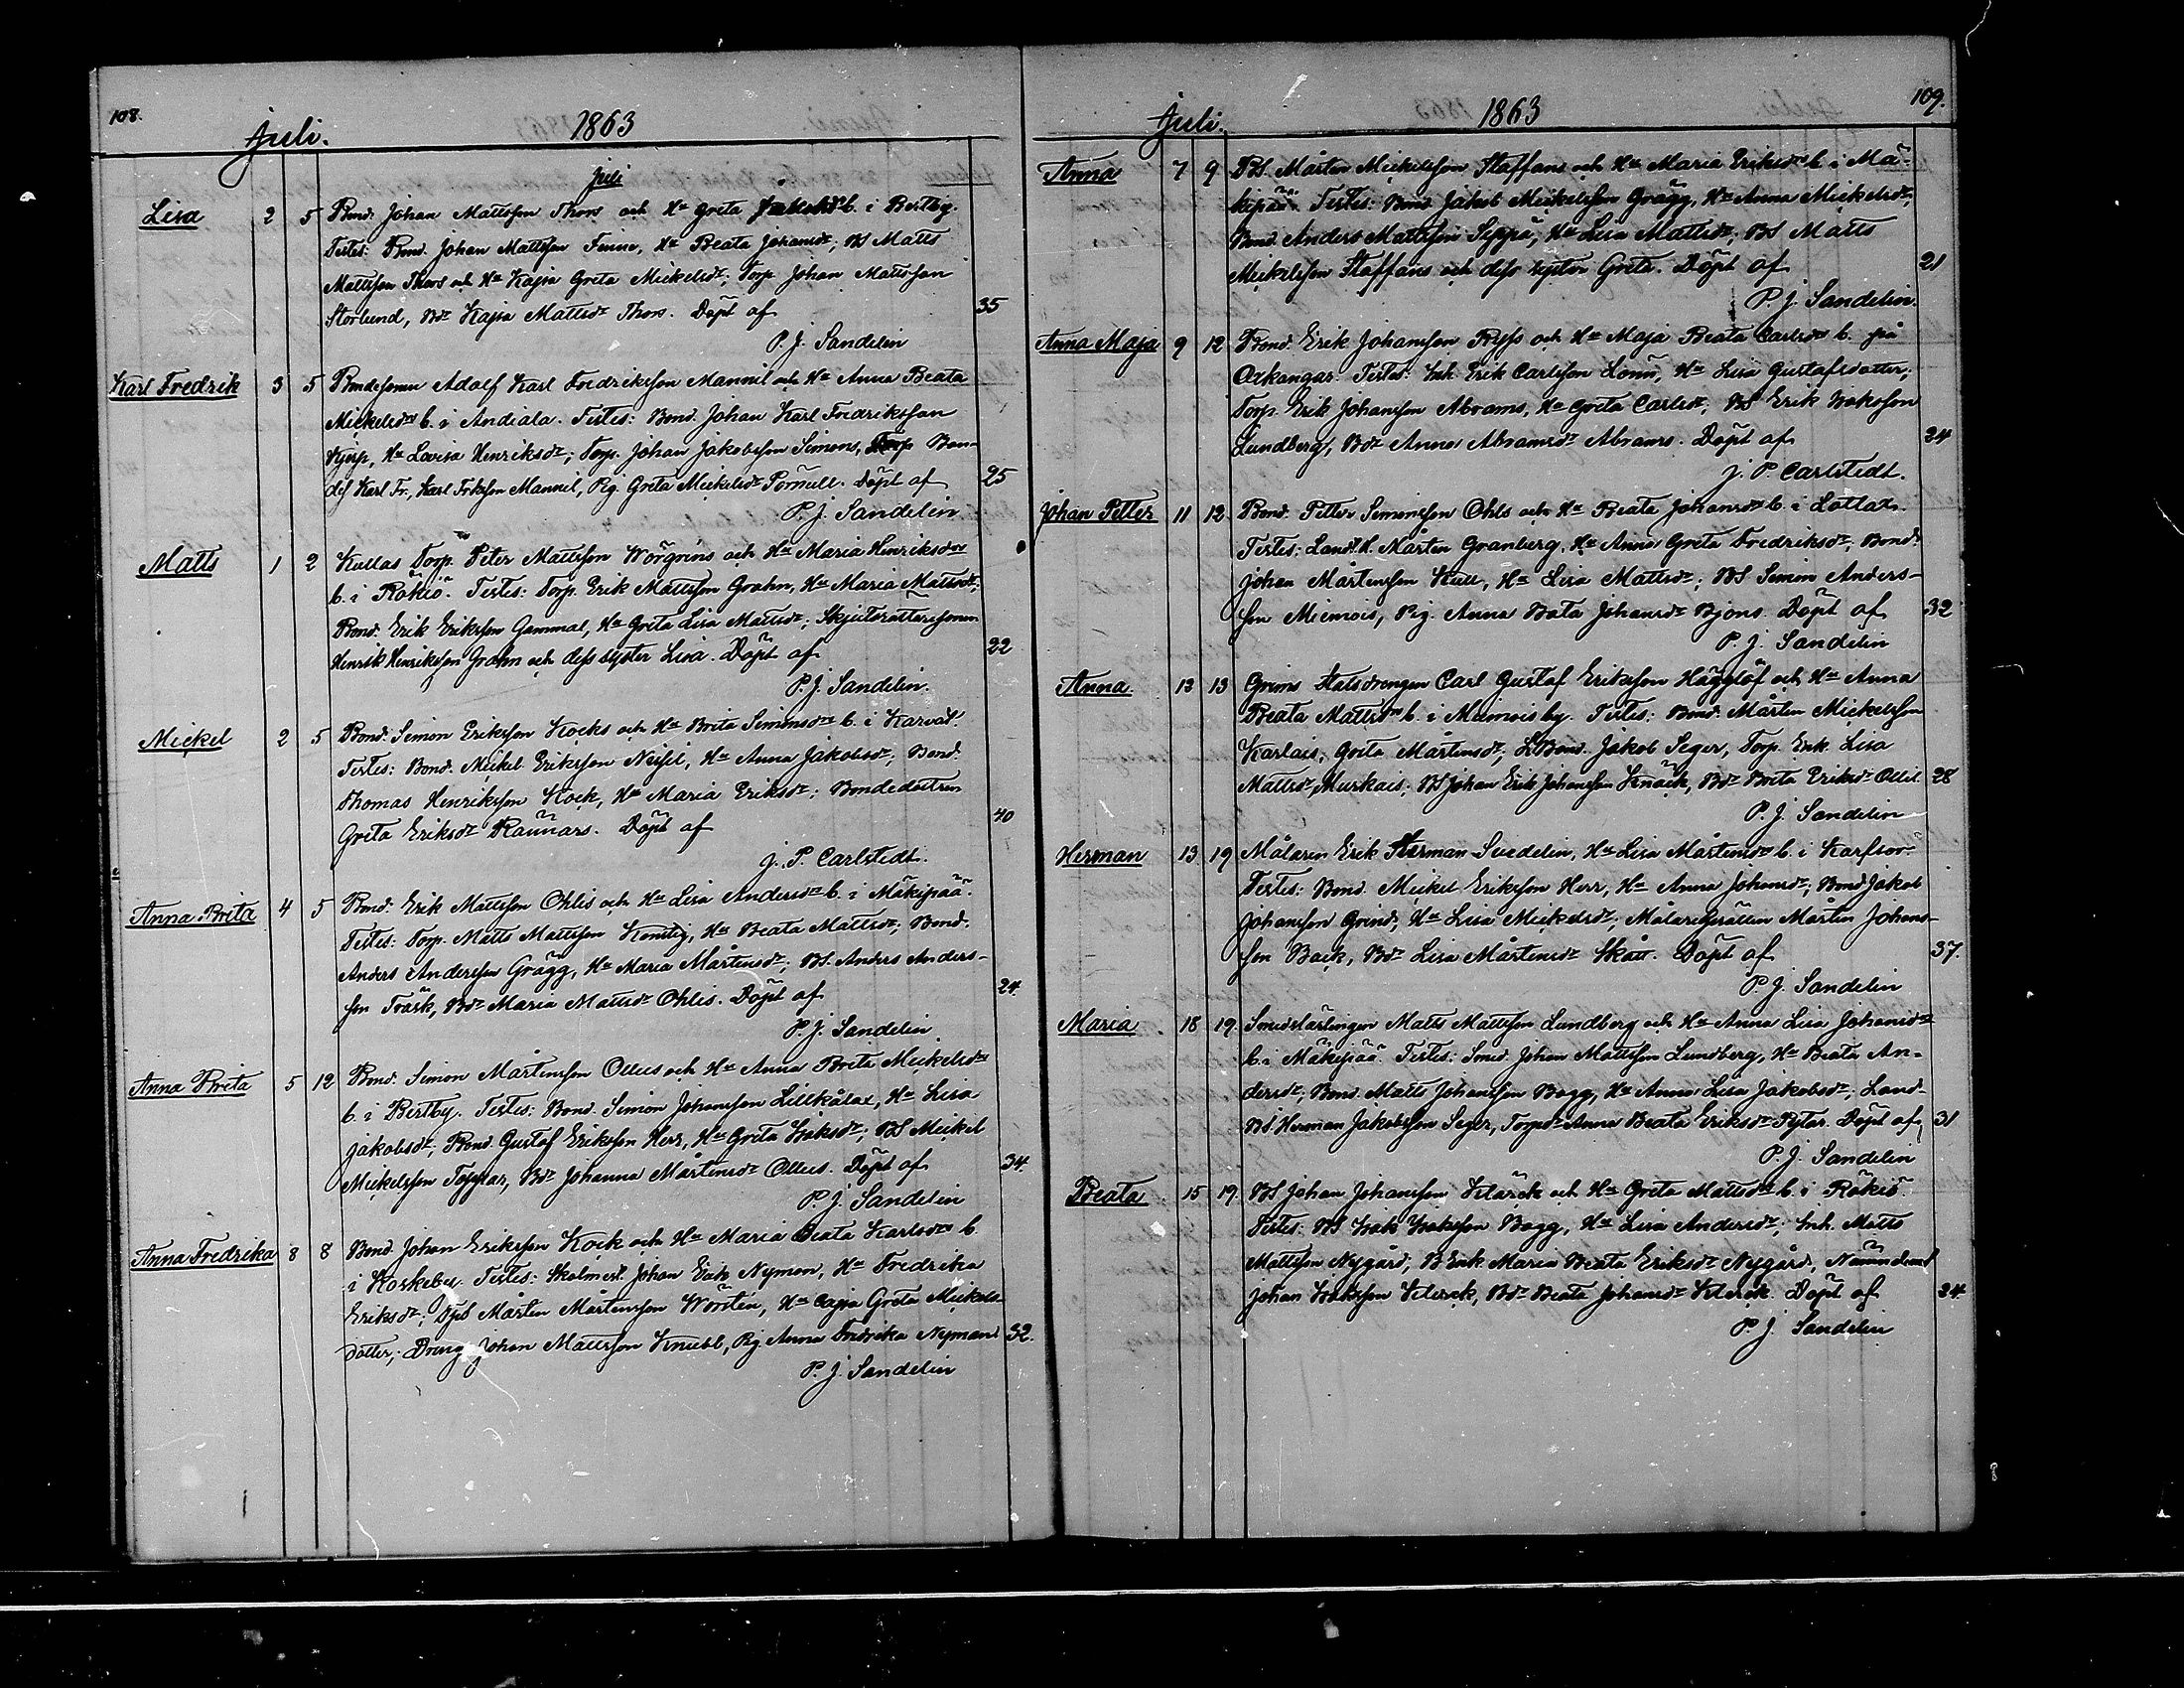 108.
Juli.
1863
Juli
Lisa 2 5 Bond. Johan Mattsson Thors och Hu Greta Jakobsdr b. i Bertby.
Testes: Bond. Johan Mattsson Finne, Hu Beata Johansdr; BS Matts
Mattsson Thors och Hu Kajsa Greta Mickelsdr; Torp. Johan Mattsson
Storlund, Bdr Kajsa Mattsdr Thors. Döpt af 35
P. J. Sandelin
Karl Fredrik 3 5 Bondesonen Adolf Karl Fredriksson Mannil och Hu Anna Beata
Mickelsdr b. i Andiala. Testes: Bond. Johan Karl Fredriksson
Kjisp, Hu Lovisa Henriksdr; Torp. Johan Jakobsson Simons, Bon-
des Karl Fr., Karl Frksson Mannil, Pig. Greta Mickelsdr Pörnull. Döpt af 25
P. J. Sandelin
Matts 1 2 Kullas Torp. Peter Mattsson Wörgrins och Hu Maria Henriksdr
b. i Rökiö. Testes: Torp. Erik Mattsson Grahn, Hu Maria Mattsdr;
Bond. Erik Eriksson Gammal, Hu Greta Lisa Mattsdr; Skjutsrättaresonen
Henrik Henriksson Grahn och dess syster Lisa. Döpt af 22
P. J. Sandelin.
Mickel 2 5 Bond. Simon Eriksson Kocks och Hu Brita Simonsdr b. i Karvat.
Testes: Bond. Mickel Eriksson Neisil, Hu Anna Jakobsdr; Bond.
Thomas Henriksson Kock, Hu Maria Eriksdr; Bondedottren
Greta Eriksdr Rännars. Döpt af 40
J. P. Carlstedt.
Anna Brita 4 5 Bond. Erik Mattsson Ohlis och Hu Lisa Andersdr b. i Mäkipää.
Testes: Torp. Matts Mattsson Konstig, Hu Beata Mattsdr; Bond.
Anders Andersson Grägg, Hu Maria Mårtensdr; BS. Anders Anders-
son Träsk, Bdr Maria Mattsdr Ohlis. Döpt af 24.
P. J. Sandelin
Anna Brita 5 12 Bond. Simon Mårtensson Ollus och Hu Anna Brita Mickelsdr
b. i Bertby. Testes: Bond. Simon Johansson Lillkålax, Hu Lisa
Jakobsdr; Bond. Gustaf Eriksson Herr, Hu Greta Isaksdr; BS Mickel
Mickelsson Toppar, Bdr Johanna Mårtensdr Ollus. Döpt af 34.
P. J. Sandelin
Anna Fredrika 8 8 Bond. Johan Eriksson Kock och Hu Maria Beata Karlsdr b.
i Koskeby. Testes: Skolmest. Johan Erik Nyman, Hu Fredrika
Eriksdr; Mårten Mårtensson Wörsten, Hu Cajsa Greta Mickels-
dotter; Dreng Johan Mattsson Knubb, Pig. Anna Fredrika Nyman 32.
P. J. Sandelin
109.
Juli.
1863
Anna 7 9 BS. Mårten Mickelsson Staffans och Hu Maria Eriksdr b. i Mä-
kipää. Testes: Bond. Jakob Mickelsson Grägg, Hu Anna Mickelsdr;
Bond. Anders Mattsson Seppä, Hu Lisa Mattsdr; BS Matts
Mickelsson Staffans och dess syster Greta. Döpt af 21
P. J. Sandelin.
Anna Maja 9 12 Bond. Erik Johansson Ryss och Hu Maja Beata Carlsdr b. på
Oxkangar. Testes: Inh. Erik Carlsson Lönn, Hu Lisa Gustafsdotter;
Torp. Erik Johansson Abrams, Hu Greta Carlsdr; BS Erik Isaksson
Lundberg, Bdr Anna Abramsdr Abrams. Döpt af 24
J. P. Carlstedt.
Johan Petter 11 12 Bond. Petter Simonsson Ohls och Hu Beata Johansdr b. i Lotlax.
Testes: Landt. H. Mårten Granberg, Hu Anna Greta Fredriksdr; Bond.
Johan Mårtensson Kull, Hu Lisa Mattsdr; BS Simon Anders-
son Miemois, Pig. Anna Beta Johansdr Bjons. Döpt af 32
P. J. Sandelin
Anna 12 13 Grims Statsdrengen Carl Gustaf Eriksson Hägglöf och Hu Anna
Beata Mattsdr b. i Miemoisby. Testes: Bond. Mårten Mickelsson
Karlais, Greta Mårtensdr; LBond. Jakob Seger, Torp. Enk. Lisa
Mattsdr Murkais; BS Johan Erik Johansson Knäck, Bdr Brita Eriksdr Ollil 28
P. J. Sandelin
Herman 13 19 Målaren Erik Herman Svedelin, Hu Lisa Mårtensdr b. i Karfsor.
Testes: Bond. Mickel Eriksson Herr, Hu Anna Johansdr; Bond Jakob
Johansson Grind, Hu Lisa Mickelsdr; Målaregesällen Mårten Johans-
son Back, Bdr Lisa Mårtensdr Skått. Döpt af 37.
P. J. Sandelin
Maria 18 19. Smedslärlingen Matts Mattsson Lundberg och Hu Anna Lisa Johansdr
b. i Mäkipää. Testes: Smed. Johan Mattsson Lundberg, Hu Beata An-
dersdr; Bond. Matts Johansson Bagg, Hu Anna Lisa Jakobsdr; Land-
BS. Herman Jakobsson Seger, Torpdr Anna Beata Eriksdr Pytar. Döpt af 31
P. J. Sandelin
Beata 15 19. BS Johan Johansson Klärck och Hu Greta Mattsdr b. i Rökiö.
Testes: BS Isak Isaksson Bagg, Hu Lisa Andersdr; Inh. Matts
Mattsson Nygård, B Enk. Maria Beata Eriksdr Nygård, Nämndem
Johan Isaksson Klerck, Bdr Beata Johansdr Klerck. Döpt af 24
P. J. Sandelin